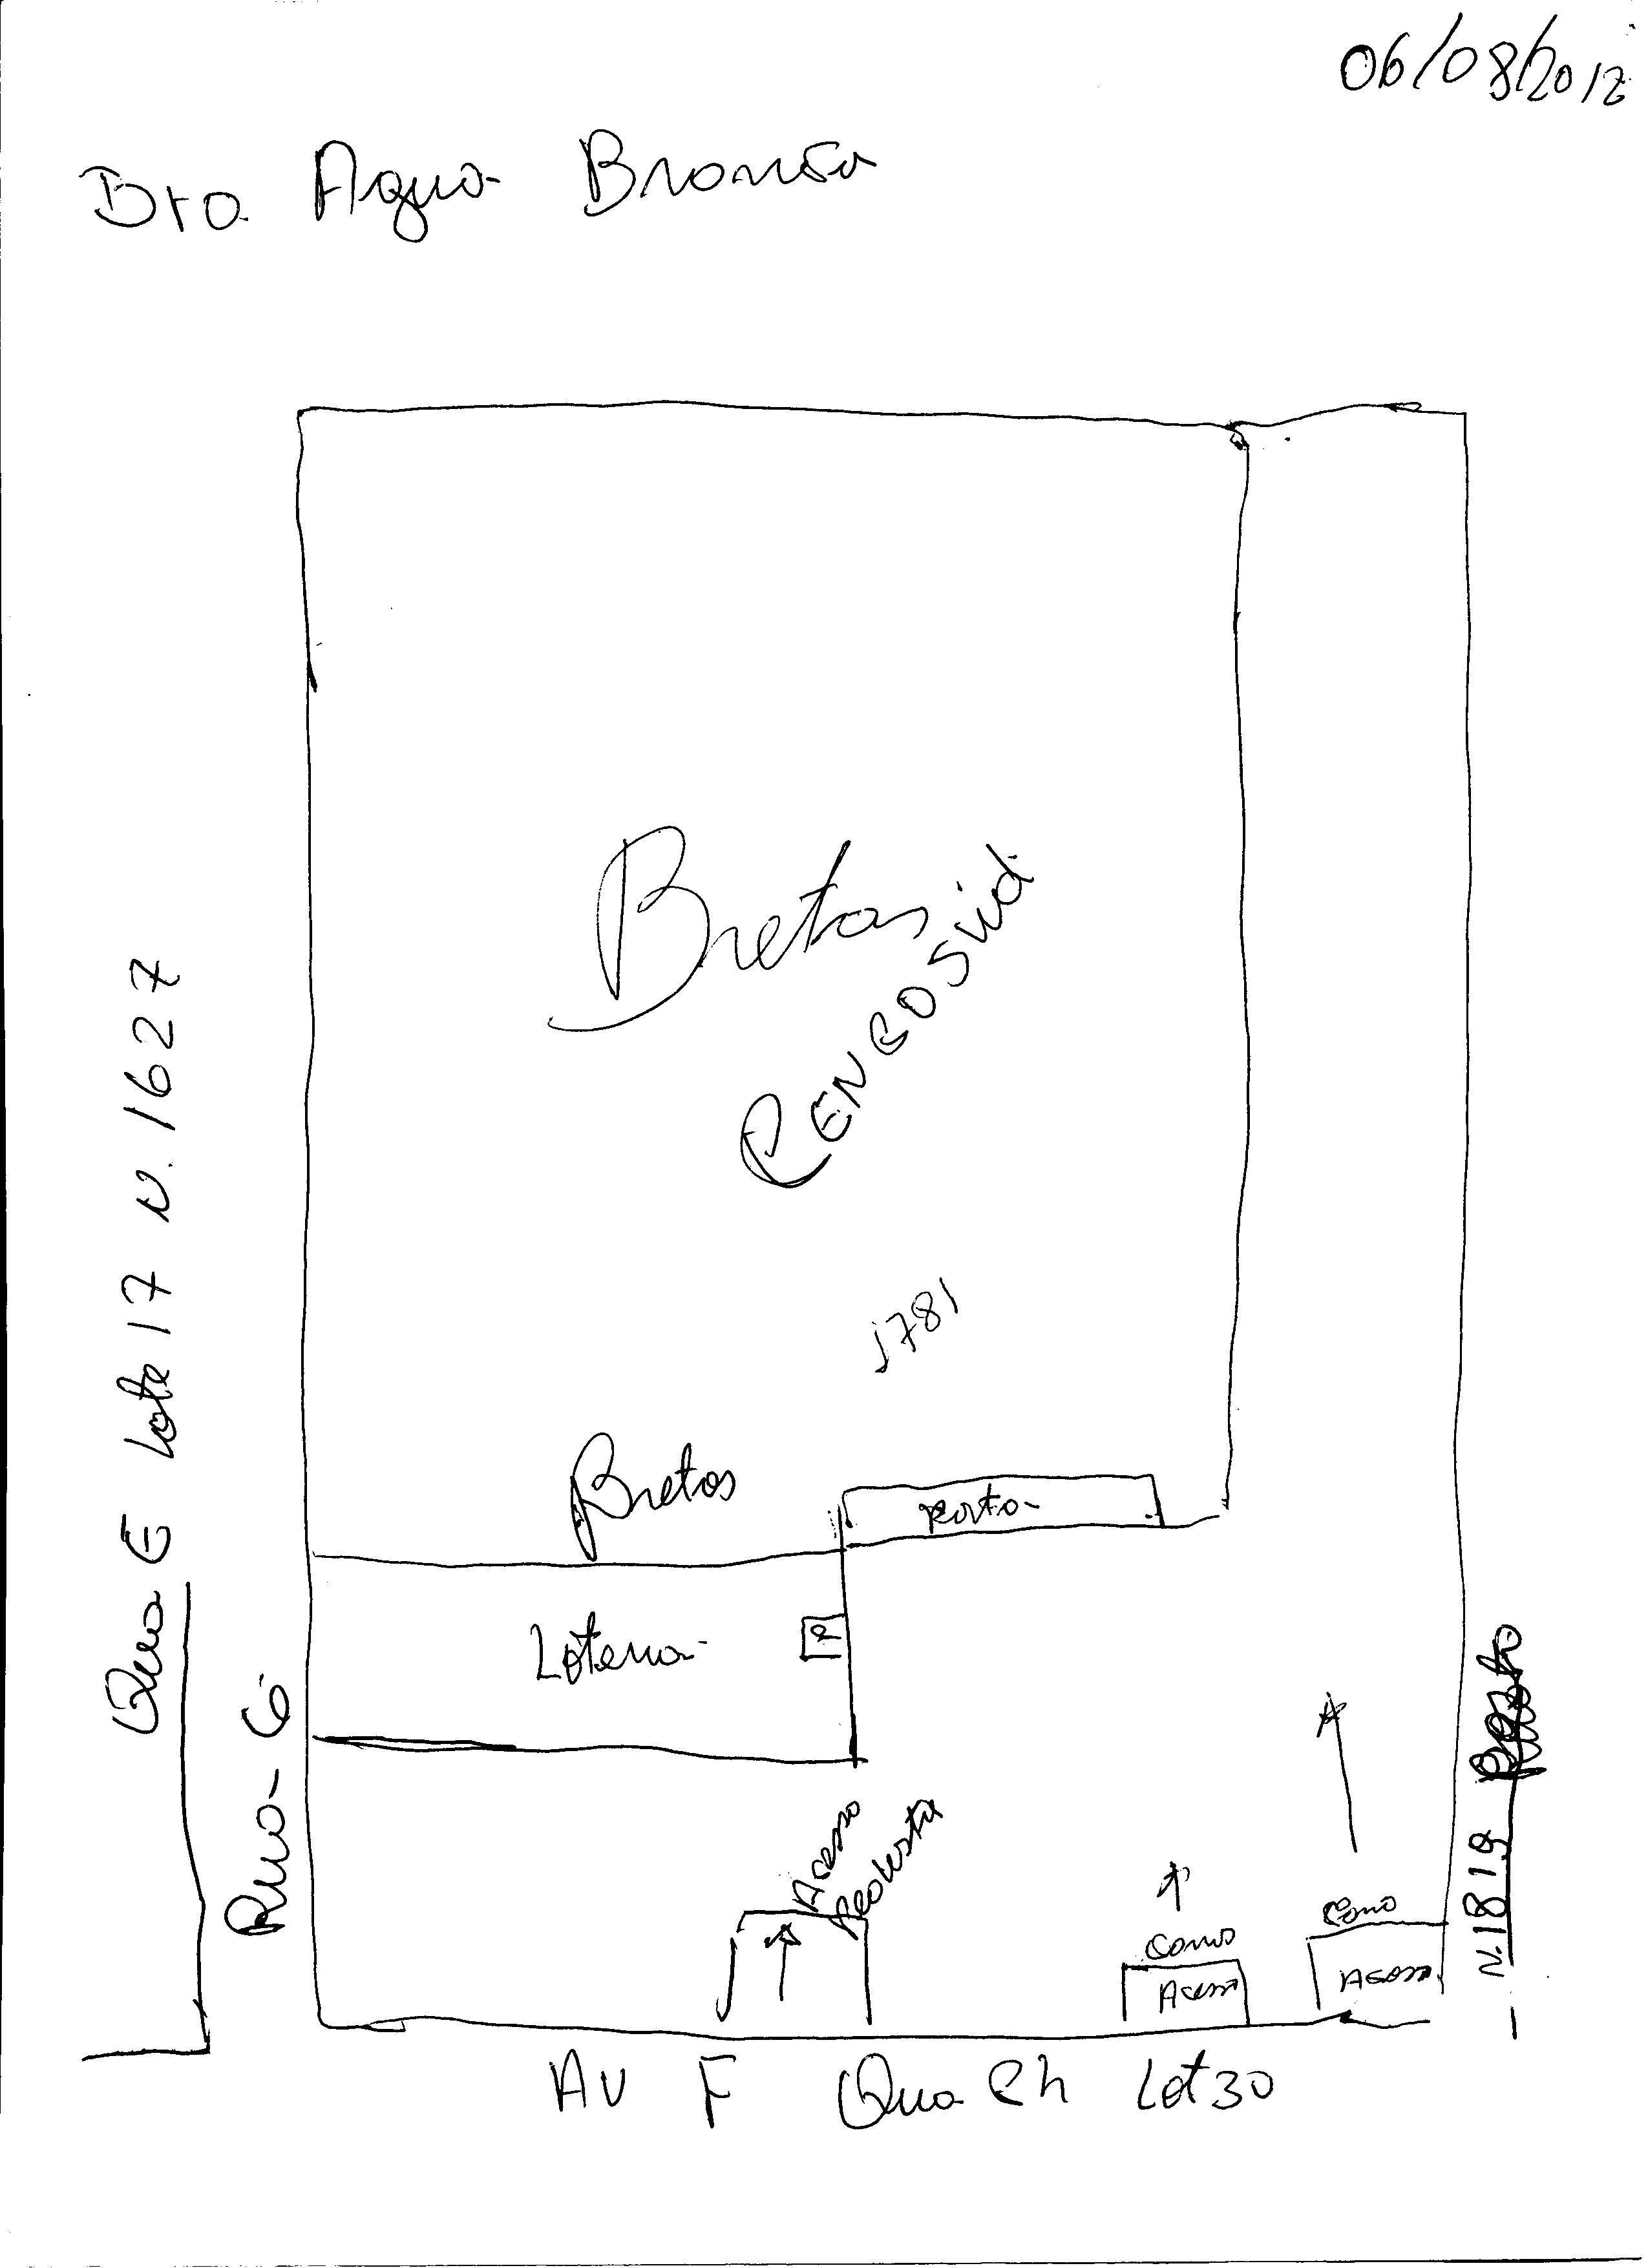 06/08/2012
Bro. Agua Branca
Bretas
CENCOSUD
1781
Bretas
Porta
Loteria
P
Qua E Lote 17 N. 1627
Rua G
Acesso
Pedestre
Carro
Acesso
Carro
Acesso
N. 1819
Av F Qua Ch Lot 30